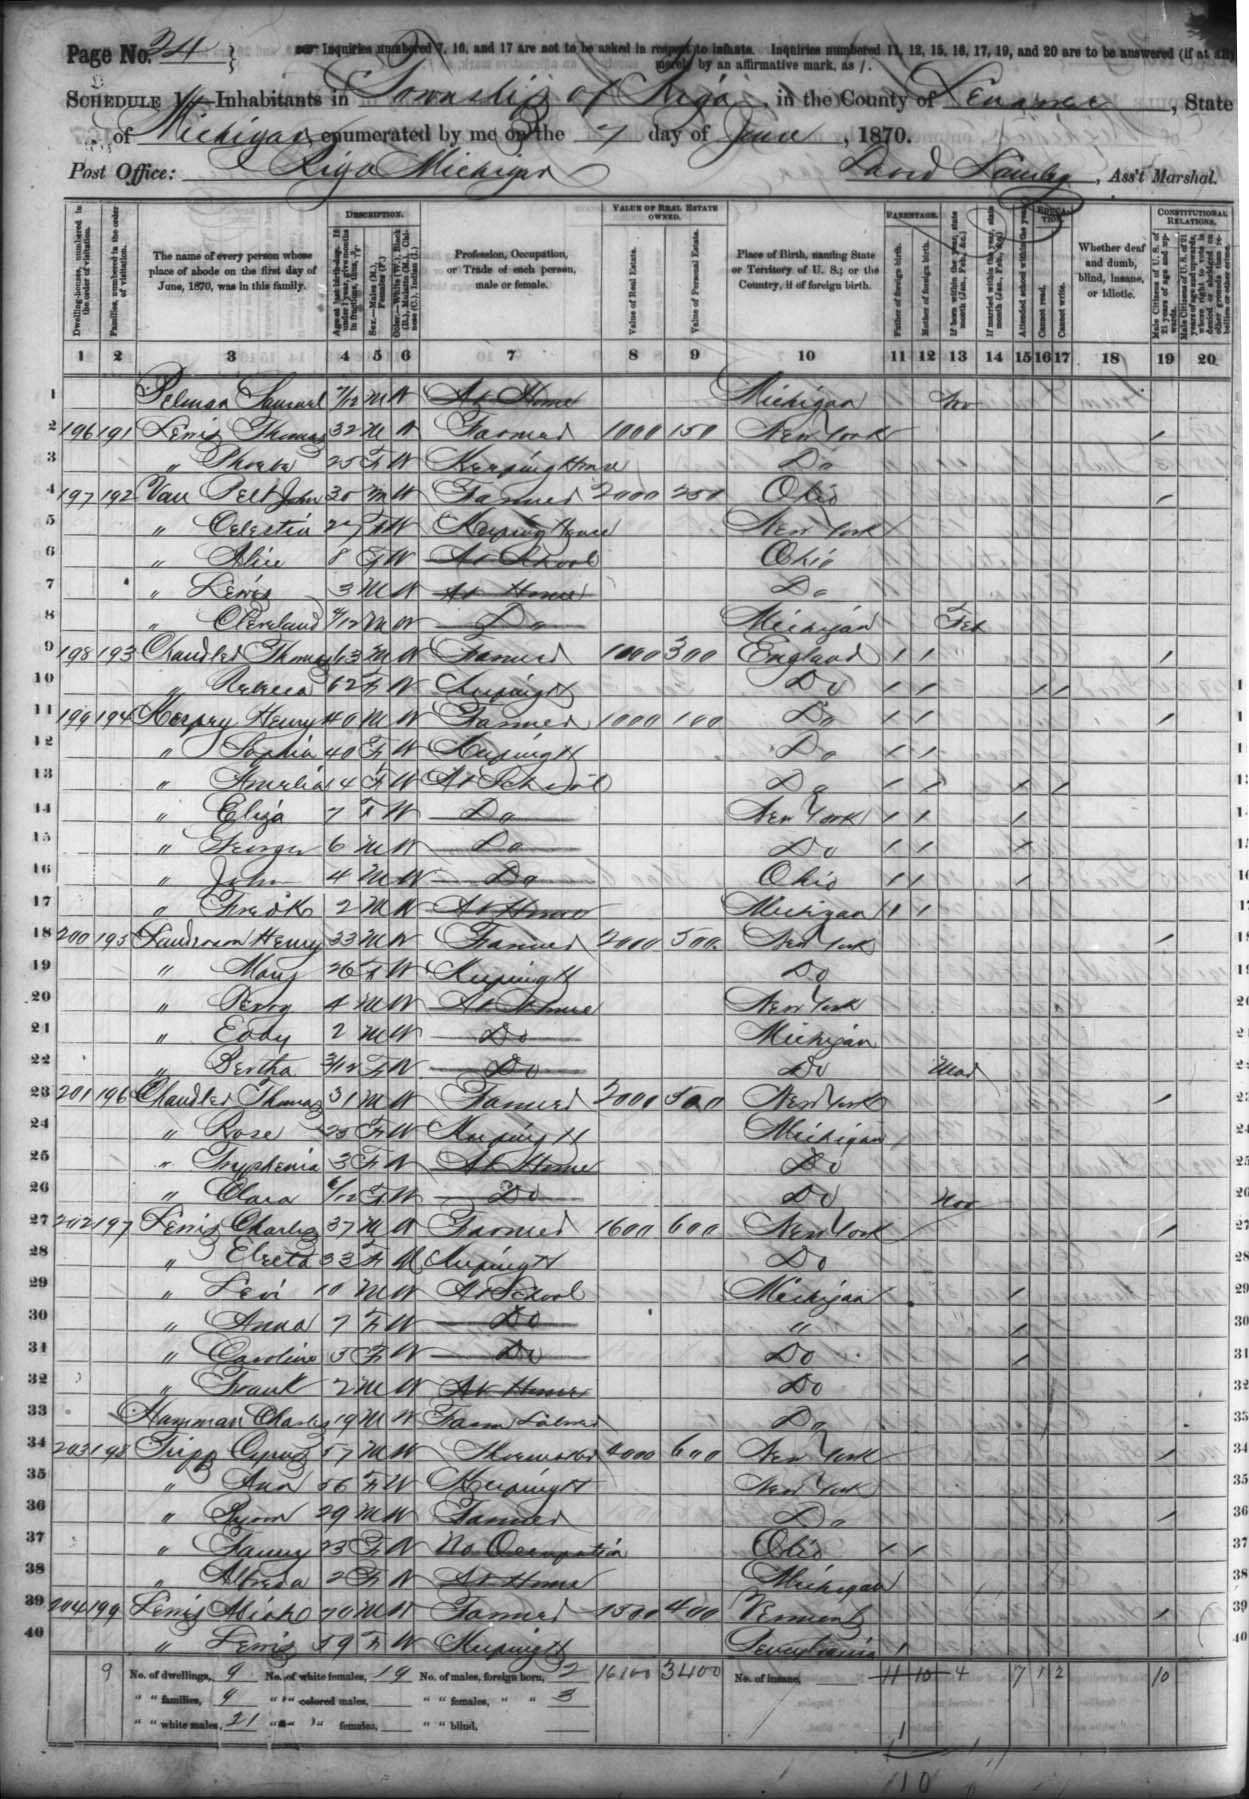 Page No. 24
Inquiries numbered 7, 16, and 17 are not to be asked in respect to infants. Inquiries numbered 11, 12, 15, 16, 17, 19, and 20 are to be answered (if at all)
merely by an affirmative mark, as /.
SCHEDULE 1.—Inhabitants in Township of Riga, in the County of Lenawee, State
of Michigan, enumerated by me on the 7 day of June, 1870.
Post Office: Riga Michigan David , Ass't Marshal.
Dwelling-houses, numbered in the order of visitation.
Families, numbered in the order of visitation.
The name of every person whose place of abode on the first day of June, 1870, was in this family.
DESCRIPTION.
Age at last birth-day. If under 1 year, give months in fractions, thus, 3/12
Sex.—Males (M.), Females (F.)
Color.—White (W.), Black (B.), Mulatto (M.), Chinese (C.), Indian (I.)
Profession, Occupation, or Trade of each person, male or female.
VALUE OF REAL ESTATE OWNED.
Value of Real Estate.
Value of Personal Estate.
Place of Birth, naming State or Territory of U. S.; or the Country, if of foreign birth.
PARENTAGE.
Father of foreign birth.
Mother of foreign birth.
If born within the year, state month (Jan., Feb., &c.)
If married within the year, state month (Jan., Feb., &c.)
EDUCATION.
Attended school within the year.
Cannot read.
Cannot write.
Whether deaf and dumb, blind, insane, or idiotic.
CONSTITUTIONAL RELATIONS.
Male Citizens of U. S. of 21 years of age and upwards.
Male Citizens of U. S. of 21 years of age and upwards, where right to vote is denied or abridged on other grounds than rebellion or other crime.
1 2 3 4 5 6 7 8 9 10 11 12 13 14 15 16 17 18 19 20
1 Samuel 7/12 M W At Home Michigan Nov
2 196 191 Lewis Thomas 32 M W Farmer 1000 150 New York /
3 " Phoebe 25 F W Keeping House Do
4 197 192 Van Pelt John 30 M W Farmer 2000 250 Ohio /
5 " Celestia 27 F W Keeping House New York
6 " Alice 8 F W At School Ohio
7 " Lewis 3 M W At Home Do
8 " Cleveland 4/12 M W Do Michigan Feb
9 198 193 Chandler Thomas 63 M W Farmer 1000 300 England / / /
10 " Rebecca 62 F W Keeping H Do / / / /
11 199 194 Henry 40 M W Farmer 1000 100 Do / / /
12 " Sophia 40 F W Keeping H Do / /
13 " Amelia 14 F W At School Do / / / /
14 " Eliza 7 F W Do New York / / /
15 " George 6 M W Do Do / / /
16 " John 4 M W Do Ohio / / /
17 " Fredk 2 M W At Home Michigan / /
18 200 195 Henry 33 M W Farmer 2000 500 New York /
19 " Mary 26 F W Keeping H Do
20 " Perry 4 M W At Home New York
21 " Eddy 2 M W Do Michigan
22 " Bertha 3/12 F W Do Do Mar
23 201 196 Chandler Thomas 31 M W Farmer 2000 500 New York /
24 " Rose 25 F W Keeping H Michigan
25 " Tryphenia 3 F W At Home Do
26 " Clara 6/12 F W Do Do Nov
27 202 197 Lewis Charles 37 M W Farmer 1600 600 New York /
28 " Electa 33 F W Keeping H Do
29 " Levi 10 M W At School Michigan /
30 " Anna 7 F W Do " /
31 " Caroline 3 F W Do Do /
32 " Frank 2 M W At Home Do
33 Hamman Charles 19 M W Farm Laborer Do
34 203 198 Tripp Cyrus 57 M W Shoemaker 4000 600 New York /
35 " Ann 56 F W Keeping H New York
36 " Byron 29 M W Farmer Do /
37 " Fanny 23 F W No Occupation Ohio / /
38 " Alfreda 2 F W At Home Michigan
39 204 199 Lewis 70 M W Farmer 1500 400 Vermont /
40 " Lewis 59 F W Keeping H Pennsylvania /
9 No. of dwellings, 9 No. of white females, 19 No. of males, foreign born, 2 16100 3400 No. of insane, 11 10 4 7 1 2 10
" " families, 9 " " colored males, " " females, " " 3
" " white males, 21 " " " females, " " blind,
1
10